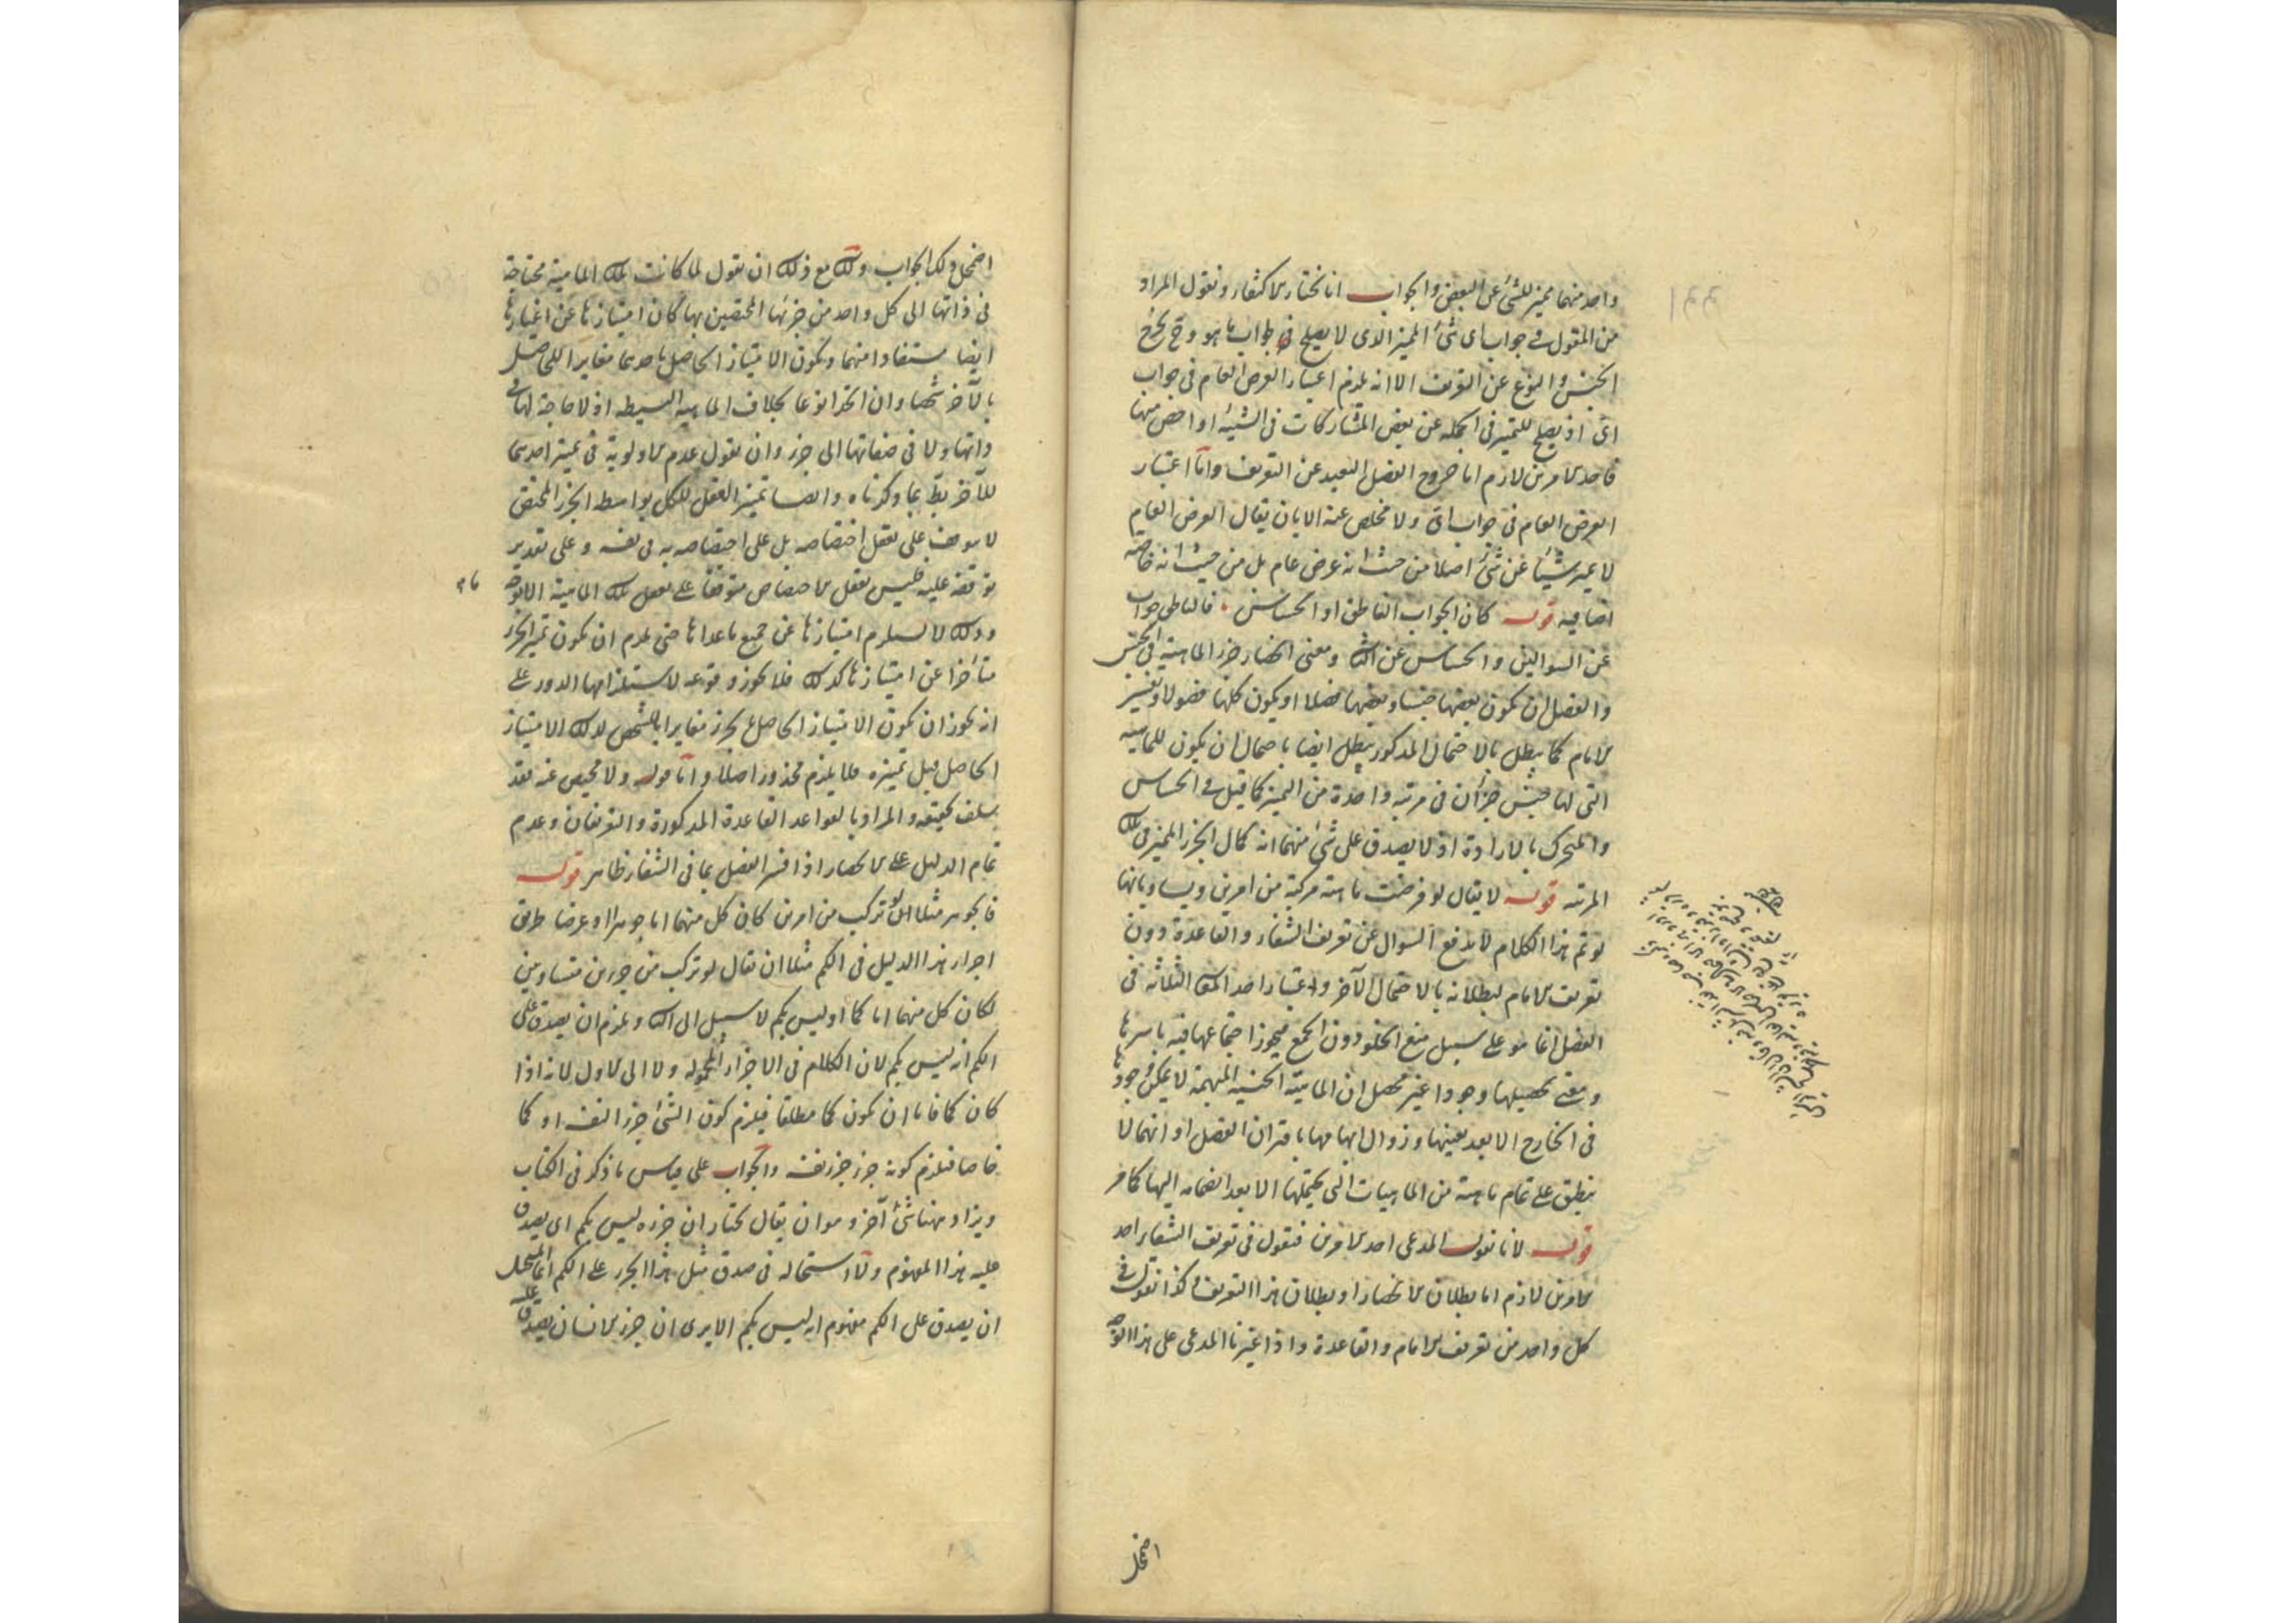 واحد منهما مميز للشئ عن البعض والجواب انا نختار الاكتفاء ونقول المراد
من المقول فى جواب اى شئ المميز الذى لا يصلح فى جواب ما هو وح يخرج
الجنس والنوع عن التعريف الا انه يلزم اعتبار العرض العام فى جواب
اى اذ يصلح للتميز فى الجملة عن بعض المشاركات فى الشيئية او اخص منها
فاحد الامرين لازم اما خروج الفصل البعيد عن التعريف واما اعتبار
العرض العام فى جواب اى ولا مخلص عنه الا بان يقال العرض العام
لا يميز شيئا عن شئ اصلا من حيث انه عرض عام بل من حيث انه خاصة
اضافية قوله كان الجواب الناطق او الحساس فالناطق جواب
عن السوالين والحساس عن الثانى ومعنى انحصار جزء الماهية فى الجنس
والفصل ان يكون بعضها جنسا وبعضها فصلا او يكون كلها فصولا وتفسير
الامام كما يبطل بالاحتمال المذكور يبطل ايضا باحتمال ان يكون للماهية
التى لها جنس جزآن فى مرتبة واحدة من التميز كما قيل فى الحساس
والمتحرك بالارادة اذ لا يصدق على شئ منهما انه كمال الجزء المميز فى تلك
المرتبة قوله لا يقال لو فرضت ماهية مركبة من امرين ويساويانها
لو تم هذا الكلام لاندفع السوال عن تعريف الشفاء والقاعدة دون
تعريف الامام لبطلانه بالاحتمال الآخر واعتبار احد المعانى الثلاثة فى
الفصل انما هو على سبيل منع الخلو دون الجمع فيجوز اجتماعها فيه باسرها
ومعنى تحصيلها وجودا غير محصل ان الماهية الجنسية المبهمة لا يمكن وجودها
فى الخارج الا بعد تعينها وزوال ابهامها باقتران الفصل او انها لا
ينطبق على تمام ماهية من الماهيات التى يحتملها الا بعد انضمامه اليها كما مر
قوله لانا نقول المدعى احد الامرين فنقول فى تعريف الشفاء احد
الامرين لازم اما بطلان الانحصار او بطلان هذا التعريف وكذا نقول فى
كل واحد من تعريف الامام والقاعدة واذا غيرنا المدعى على هذا الوجه
اضمحل
اضمحل ذلك الجواب ولك مع ذلك ان تقول لما كانت تلك الماهية محتاجة
فى ذاتها الى كل واحد من جزئها المختصين بها كان امتيازها عن اغيارها
ايضا مستفادا منهما ويكون الامتياز الحاصل باحدهما مغايرا للحاصل
بالآخر شخصا وان اتحدا نوعا بخلاف الماهية البسيطة اذ لا حاجة لها فى
ذاتها ولا فى صفاتها الى جزء وان تقول عدم الاولوية فى تميز احدهما
للآخر بط بما ذكرناه وايضا تميز العقل للكل بواسطة الجزء المختص
لا يتوقف على تعقل اختصاصه بل على اختصاصه به فى نفسه وعلى تقدير
توقفه عليه فليس تعقل الاختصاص متوقفا على تعقل تلك الماهية الا بوجه ما
وذلك لا يستلزم امتيازها عن جميع ما عداها حتى يلزم ان يكون تميز الجزء
متأخرا عن امتيازها كذلك فلا يجوز وقوعه لاستلزامها الدور على
انه يجوز ان يكون الامتياز الحاصل بجزء مغايرا بالشخص لذلك الامتياز
الحاصل قبل تميزه فلا يلزم محذور اصلا واما قوله ولا محيص عنه فقد
سلف تحقيقه والمراد بالقواعد القاعدة المذكورة والتعريفان وعدم
تمام الدليل على الانحصار اذا فسر الفصل بما فى الشفاء ظاهر قوله
فالجوهر مثلا لو تركب من امرين كان كل منهما اما جوهرا او عرضا طريق
اجراء هذا الدليل فى الكم مثلا ان يقال لو تركب من جزءين متساويين
لكان كل منهما اما كما او ليس بكم لا سبيل الى الثانى ويلزم ان يصدق على
الكم انه ليس بكم لان الكلام فى الاجزاء المحمولة ولا الى الاول لانه اذا
كان كما فاما ان يكون كما مطلقا فيلزم كون الشئ جزءا لنفسه او كما
خاصا فيلزم كونه جزء جزء نفسه والجواب على قياس ما ذكر فى الكتاب
ويزاد ههنا شئ آخر وهو ان يقال نختار ان جزءه ليس بكم اى يصدق
عليه هذا المفهوم ولا استحالة فى صدق مثل هذا الجزء على الكم انما المستحيل
ان يصدق على الكم مفهوم انه ليس بكم الا يرى ان جزء الانسان يصدق عليه